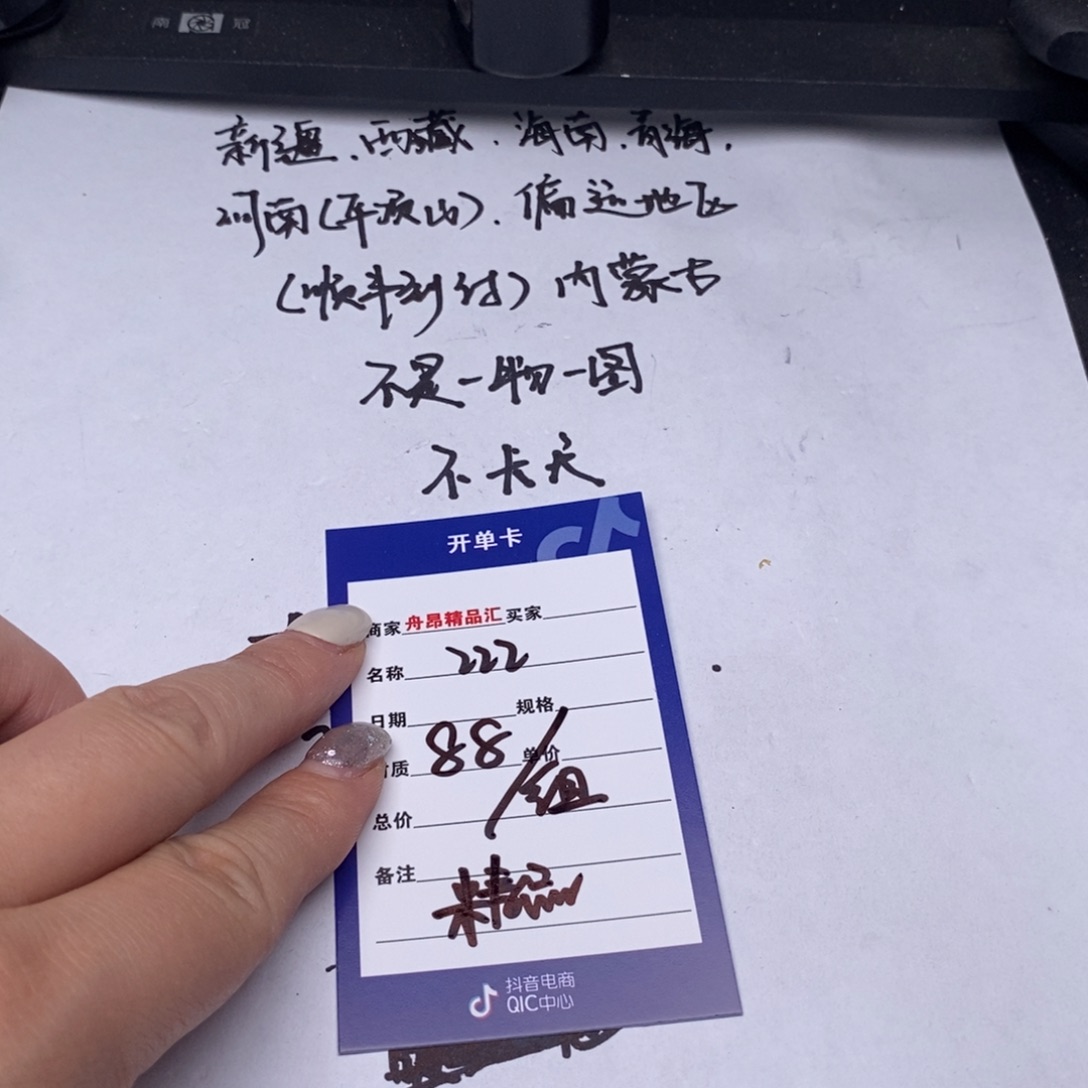 南 冠
新疆、西藏、海南、青海、
河南(平顶山)、偏远地区
(顺丰到付)内蒙古
不是一物一图
不卡天
开单卡
商家 舟昂精品汇 买家
名称 222
日期 规格
质 88/组 单价
总价
备注 精品
抖音电商
QIC中心